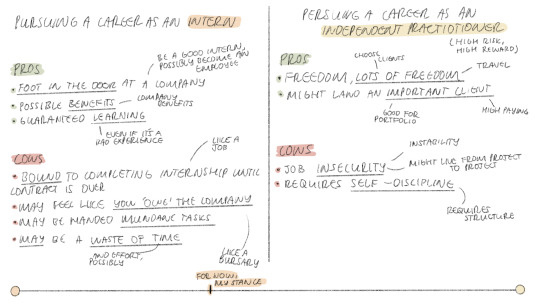 PURSUING A CAREER AS AN INTERN
BE A GOOD INTERN,
POSSIBLY BECOME AN
EMPLOYEE
PROS
FOOT IN THE DOOR AT A COMPANY
POSSIBLE BENEFITS
COMPANY
BENEFITS
GUARANTEED LEARNING
EVEN IF IT'S A
BAD EXPERIENCE
LIKE A
JOB
CONS
BOUND TO COMPLETING INTERNSHIP UNTIL
CONTRACT IS OVER
MAY FEEL LIKE YOU 'OWE' THE COMPANY
MAY BE HANDED MUNDANE TASKS
MAY BE A WASTE OF TIME
AND EFFORT,
POSSIBLY
LIKE A
BURSARY
PERSUING A CAREER AS AN
INDEPENDENT PRACTIOTIONER
(HIGH RISK,
HIGH REWARD)
PROS
CHOOSE
CLIENTS
TRAVEL
FREEDOM, LOTS OF FREEDOM
MIGHT LAND AN IMPORTANT CLIENT
GOOD FOR
PORTFOLIO
HIGH PAYING
CONS
INSTABILITY
JOB INSECURITY
MIGHT LIVE FROM PROJECT
TO PROJECT
REQUIRES SELF-DISCIPLINE
REQUIRES
STRUCTURE
FOR NOW,
MY STANCE